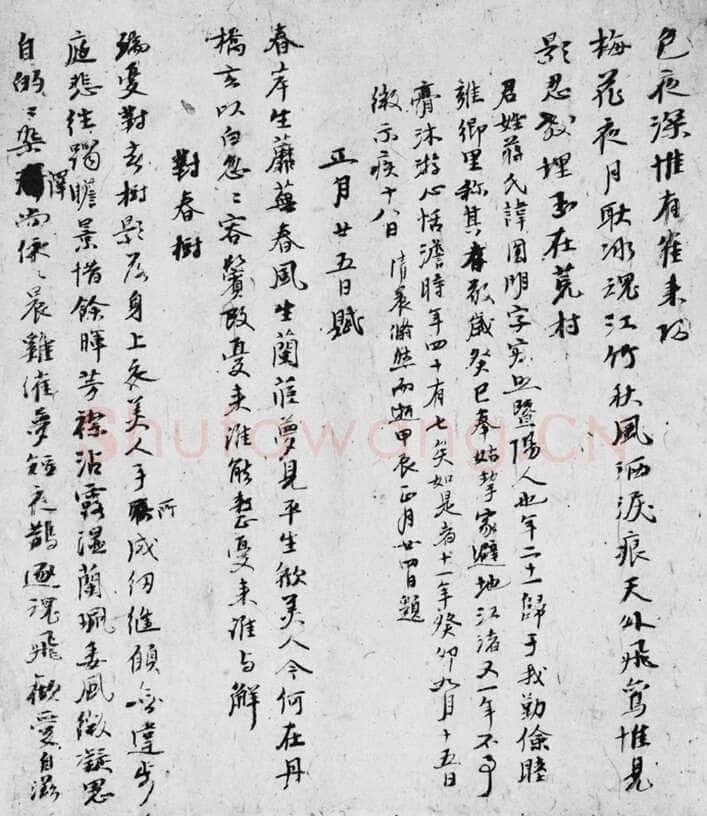 色夜深惟有崔來歸
梅花夜月耿冰魂江竹秋風洒淚痕天外飛鸞惟見
影忍教埋玉在荒村
君姓蔣氏諱圓明字寂照暨陽人也年二十一歸于我勤儉睦
雍鄉里稱其孝敬歲癸巳奉姑挈家避地江渚又一年不事
膏沐游心恬澹時年四十有七矣如是者十一年癸卯九月十五日
微示疾十八日清晨翛然而逝甲辰正月廿四日題
正月廿五日賦
春岸生蘼蕪春風生蘭茝夢見平生歡美人今何在丹
橋玄以白忽忽容鬢改憂來誰能整憂來誰与解
對春樹
對春樹影落身上衣美人手所成綢繆願會違步
庭悲往躅瞻景惜餘暉芳襟沾露濕蘭珮委風微凝思
自的的染澤尚依依晨雞催夢短夜鵲逐魂飛憂自滋
Shufawang.CN